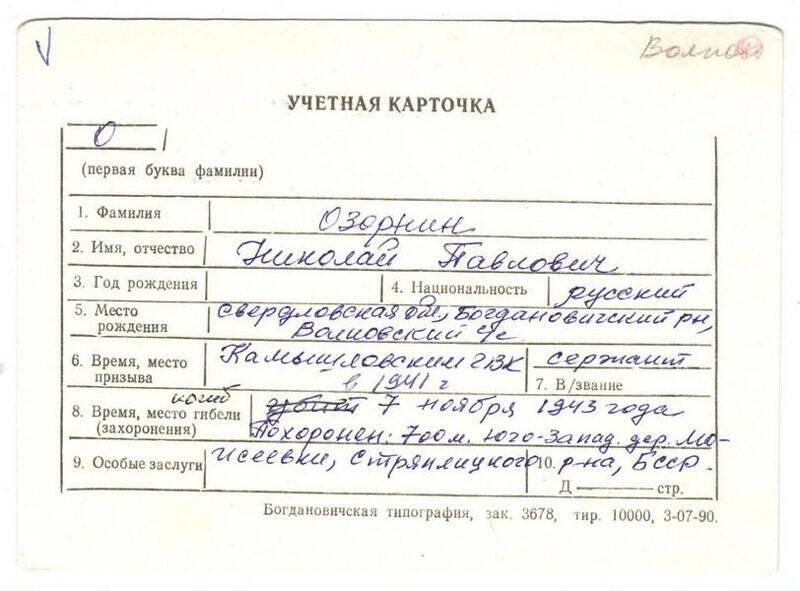 V
УЧЕТНАЯ КАРТОЧКА
О
(первая буква фамилии)
1. Фамилия Озорнин
2. Имя, отчество Николай Павлович
3. Год рождения 4. Национальность русский
5. Место рождения Свердловская обл, Богдановичский рн,
Волковский с/с
6. Время, место призыва Камышловским ГВК
в 1941 г
сержант
7. В/звание
погиб
8. Время, место гибели (захоронения) убит 7 ноября 1943 года
Похоронен: 700м. юго-запад. дер. Мо-
9. Особые заслуги исеевки, Стряплицкого р-на, БССР.
10.
Д стр.
Богдановичская типография, зак. 3678, тир. 10000, 3-07-90.